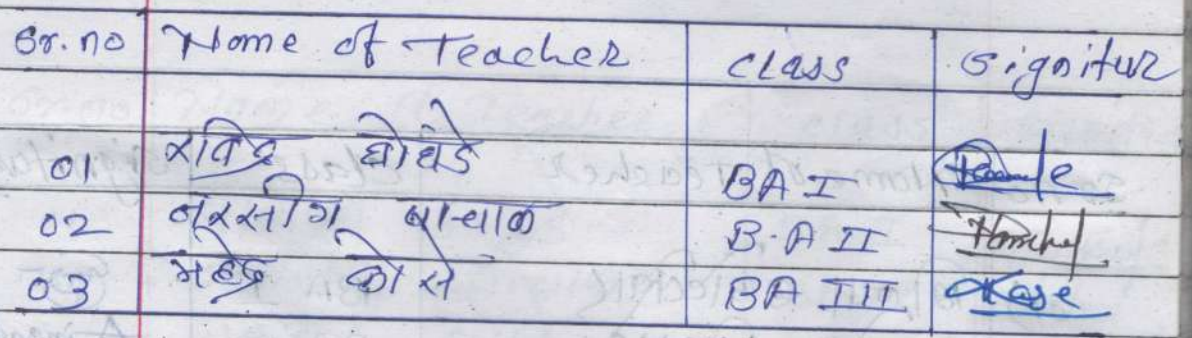 Sr.no Name of Teacher class Signitur
01 रविंद्र घोघरे BA I
02 नरसींग पाचाळ B.A II
03 महेंद्र कोसे BA III Kase